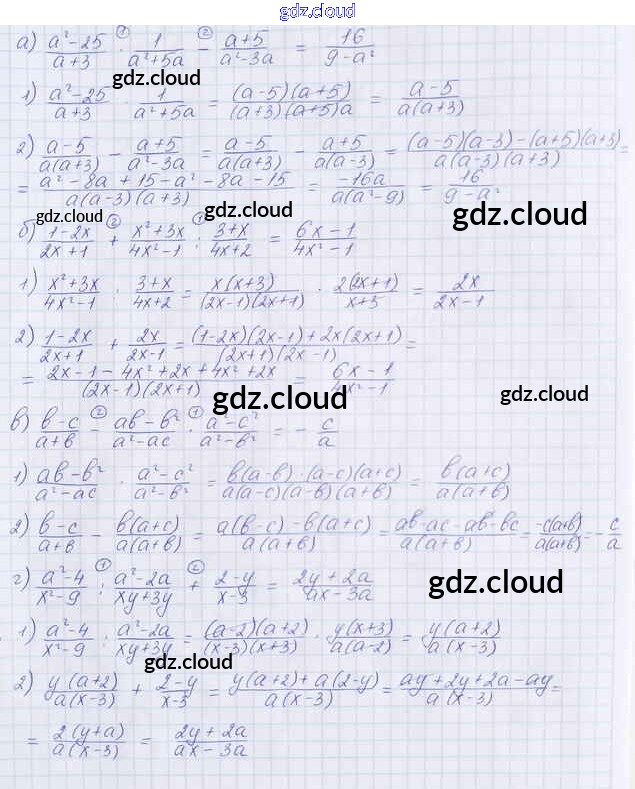 gdz.cloud
а) (a²-25)/(a+3) · 1/(a²+5a) - (a+5)/(a²-3a) = 16/(9-a²)
1) (a²-25)/(a+3) · 1/(a²+5a) = (a-5)(a+5)/((a+3)(a+5)a) = (a-5)/(a(a+3))
gdz.cloud
2) (a-5)/(a(a+3)) - (a+5)/(a²-3a) = (a-5)/(a(a+3)) - (a+5)/(a(a-3)) = ((a-5)(a-3)-(a+5)(a+3))/(a(a-3)(a+3)) =
gdz.cloud
= (a²-8a+15-a²-8a-15)/(a(a-3)(a+3)) = -16a/(a(a²-9)) = 16/(9-a²)
gdz.cloud gdz.cloud gdz.cloud
б) (1-2x)/(2x+1) + (x²+3x)/(4x²-1) : (3+x)/(4x+2) = (6x-1)/(4x²-1)
1) (x²+3x)/(4x²-1) : (3+x)/(4x+2) = x(x+3)/((2x-1)(2x+1)) · 2(2x+1)/(x+3) = 2x/(2x-1)
gdz.cloud
2) (1-2x)/(2x+1) + 2x/(2x-1) = ((1-2x)(2x-1)+2x(2x+1))/((2x+1)(2x-1)) =
= (2x-1-4x²+2x+4x²+2x)/((2x-1)(2x+1)) = (6x-1)/(4x²-1)
gdz.cloud gdz.cloud
в) (b-c)/(a+b) - (ab-b²)/(a²-ac) · (a²-c²)/(a²-b²) = -c/a
1) (ab-b²)/(a²-ac) · (a²-c²)/(a²-b²) = b(a-b)·(a-c)(a+c)/(a(a-c)(a-b)(a+b)) = b(a+c)/(a(a+b))
gdz.cloud
2) (b-c)/(a+b) - b(a+c)/(a(a+b)) = (a(b-c)-b(a+c))/(a(a+b)) = (ab-ac-ab-bc)/(a(a+b)) = -c(a+b)/(a(a+b)) = -c/a
г) (a²-4)/(x²-9) : (a²-2a)/(xy+3y) + (2-y)/(x-3) = (2y+2a)/(ax-3a)
gdz.cloud
1) (a²-4)/(x²-9) : (a²-2a)/(xy+3y) = (a-2)(a+2)/((x-3)(x+3)) · y(x+3)/(a(a-2)) = y(a+2)/(a(x-3))
gdz.cloud
2) y(a+2)/(a(x-3)) + (2-y)/(x-3) = (y(a+2)+a(2-y))/(a(x-3)) = (ay+2y+2a-ay)/(a(x-3)) =
= 2(y+a)/(a(x-3)) = (2y+2a)/(ax-3a)
gdz.cloud